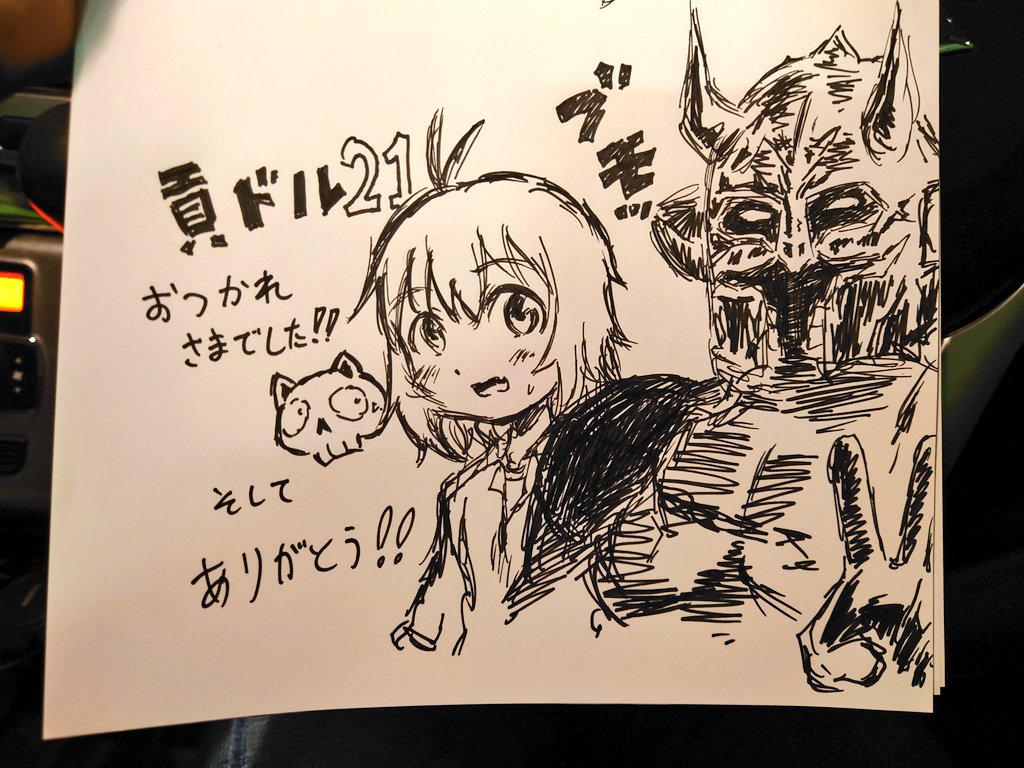 貢ドル21
おつかれ
さまでした!!
そして
ありがとう!!